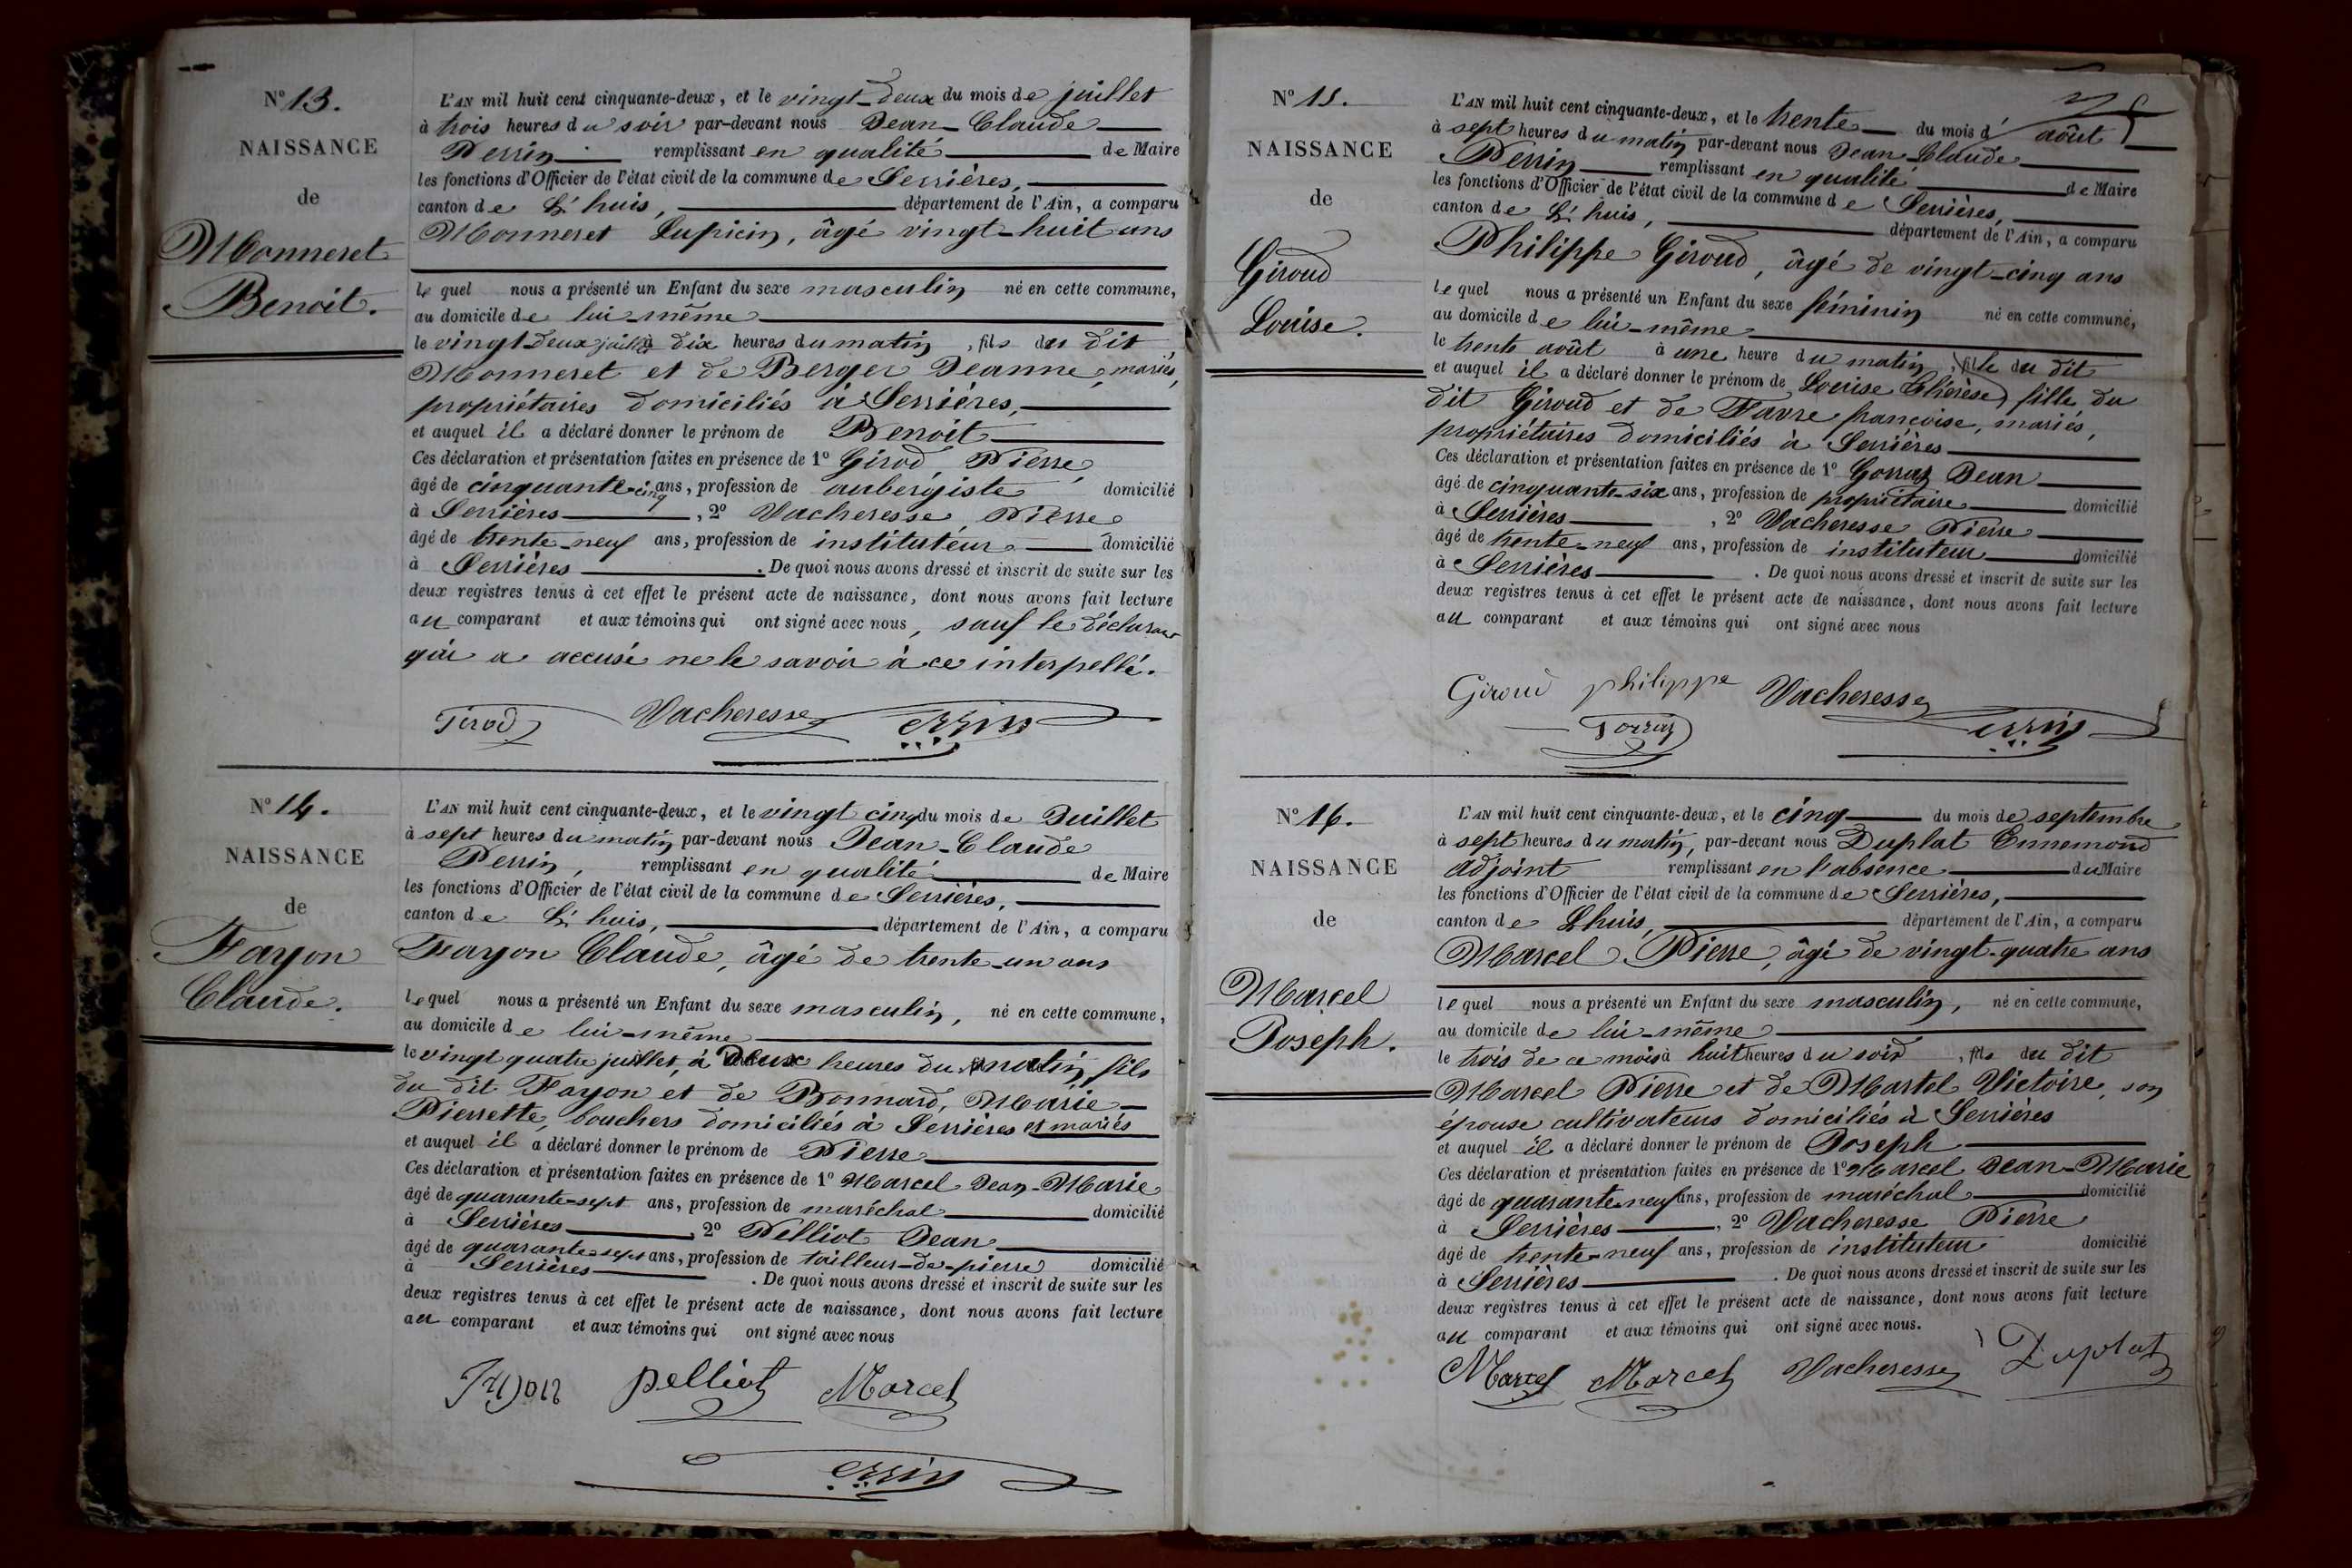 N° 13.
NAISSANCE
de
Monneret
Benoit.
L'AN mil huit cent cinquante-deux, et le vingt-deux du mois de juillet
à trois heures du soir par-devant nous Jean-Claude
Perrin remplissant en qualité de Maire
les fonctions d'Officier de l'état civil de la commune de Serrières,
canton de L'huis, département de l'Ain, a comparu
Monneret Lupicin, âgé vingt-huit ans
lequel nous a présenté un Enfant du sexe masculin né en cette commune,
au domicile de lui-même
le vingt-deux juillet à dix heures du matin, fils du dit
Monneret et de Berger Jeanne, mariés,
propriétaires domiciliés à Serrières,
et auquel il a déclaré donner le prénom de Benoit
Ces déclaration et présentation faites en présence de 1° Girod Pierre,
âgé de cinquante-cinq ans, profession de aubergiste domicilié
à Serrières, 2° Vacheresse Pierre
âgé de trente-neuf ans, profession de instituteur domicilié
à Serrières. De quoi nous avons dressé et inscrit de suite sur les
deux registres tenus à cet effet le présent acte de naissance, dont nous avons fait lecture
au comparant et aux témoins qui ont signé avec nous, sauf le déclarant
qui a accusé ne le savoir à ce interpellé.
Girod Vacheresse Perrin
N° 14.
NAISSANCE
de
Fayon
Claude.
L'AN mil huit cent cinquante-deux, et le vingt cinq du mois de Juillet
à sept heures du matin par-devant nous Jean-Claude
Perrin, remplissant en qualité de Maire
les fonctions d'Officier de l'état civil de la commune de Serrières,
canton de L'huis, département de l'Ain, a comparu
Fayon Claude, âgé de trente-un ans
lequel nous a présenté un Enfant du sexe masculin, né en cette commune,
au domicile de lui-même
le vingt quatre juillet, à deux heures du matin fils
du dit Fayon et de Bonnard, Marie-
Pierrette, bouchers domiciliés à Serrières et mariés
et auquel il a déclaré donner le prénom de Pierre
Ces déclaration et présentation faites en présence de 1° Marcel Jean-Marie
âgé de quarante-sept ans, profession de maréchal domicilié
à Serrières, 2° Pelliot Jean
âgé de quarante-sept ans, profession de tailleur-de-pierre domicilié
à Serrières. De quoi nous avons dressé et inscrit de suite sur les
deux registres tenus à cet effet le présent acte de naissance, dont nous avons fait lecture
au comparant et aux témoins qui ont signé avec nous
Fayon pelliot Marcel
Perrin
N° 15.
NAISSANCE
de
Giroud
Louise.
L'AN mil huit cent cinquante-deux, et le trente du mois d' août
à sept heures du matin par-devant nous Jean Claude
Perrin remplissant en qualité de Maire
les fonctions d'Officier de l'état civil de la commune de Serrières,
canton de L'huis, département de l'Ain, a comparu
Philippe Giroud, âgé de vingt-cinq ans
lequel nous a présenté un Enfant du sexe féminin né en cette commune,
au domicile de lui-même
le trente août à une heure du matin, fille du dit
et auquel il a déclaré donner le prénom de Louise Thérèse fille du
dit Giroud et de Favre françoise, mariés,
propriétaires domiciliés à Serrières
Ces déclaration et présentation faites en présence de 1° Gorraz Jean
âgé de cinquante-six ans, profession de propriétaire domicilié
à Serrières, 2° Vacheresse Pierre
âgé de trente-neuf ans, profession de instituteur domicilié
à Serrières. De quoi nous avons dressé et inscrit de suite sur les
deux registres tenus à cet effet le présent acte de naissance, dont nous avons fait lecture
au comparant et aux témoins qui ont signé avec nous
Giroud philippe Vacheresse
Gorraz Perrin
N° 16.
NAISSANCE
de
Marcel
Joseph.
L'AN mil huit cent cinquante-deux, et le cinq du mois de septembre
à sept heures du matin, par-devant nous Duplat Ennemond
adjoint remplissant en l'absence du Maire
les fonctions d'Officier de l'état civil de la commune de Serrières,
canton de Lhuis, département de l'Ain, a comparu
Marcel Pierre, âgé de vingt-quatre ans
lequel nous a présenté un Enfant du sexe masculin, né en cette commune,
au domicile de lui-même
le trois de ce mois à huit heures du soir, fils du dit
Marcel Pierre et de Martel Victoire, son
épouse cultivateurs domiciliés à Serrières
et auquel il a déclaré donner le prénom de Joseph
Ces déclaration et présentation faites en présence de 1° Marcel Jean-Marie
âgé de quarante-neuf ans, profession de maréchal domicilié
à Serrières, 2° Vacheresse Pierre
âgé de trente-neuf ans, profession de instituteur domicilié
à Serrières. De quoi nous avons dressé et inscrit de suite sur les
deux registres tenus à cet effet le présent acte de naissance, dont nous avons fait lecture
au comparant et aux témoins qui ont signé avec nous.
Marcel Marcel Vacheresse Duplat